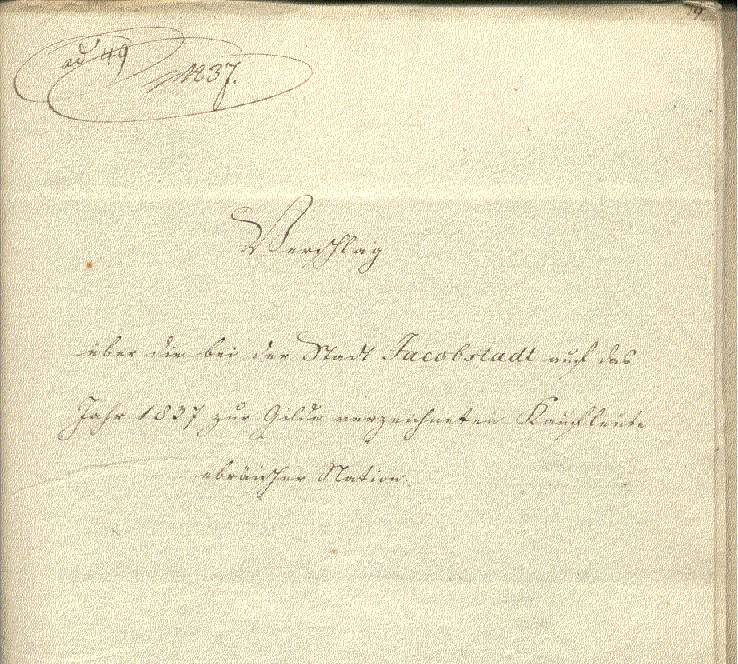 ad 49
1837.
Verschlag
über die bei der Stadt Jacobstadt auf das
Jahr 1837 zur Gilde verzeichneten Kaufleute
ebräischer Nation.